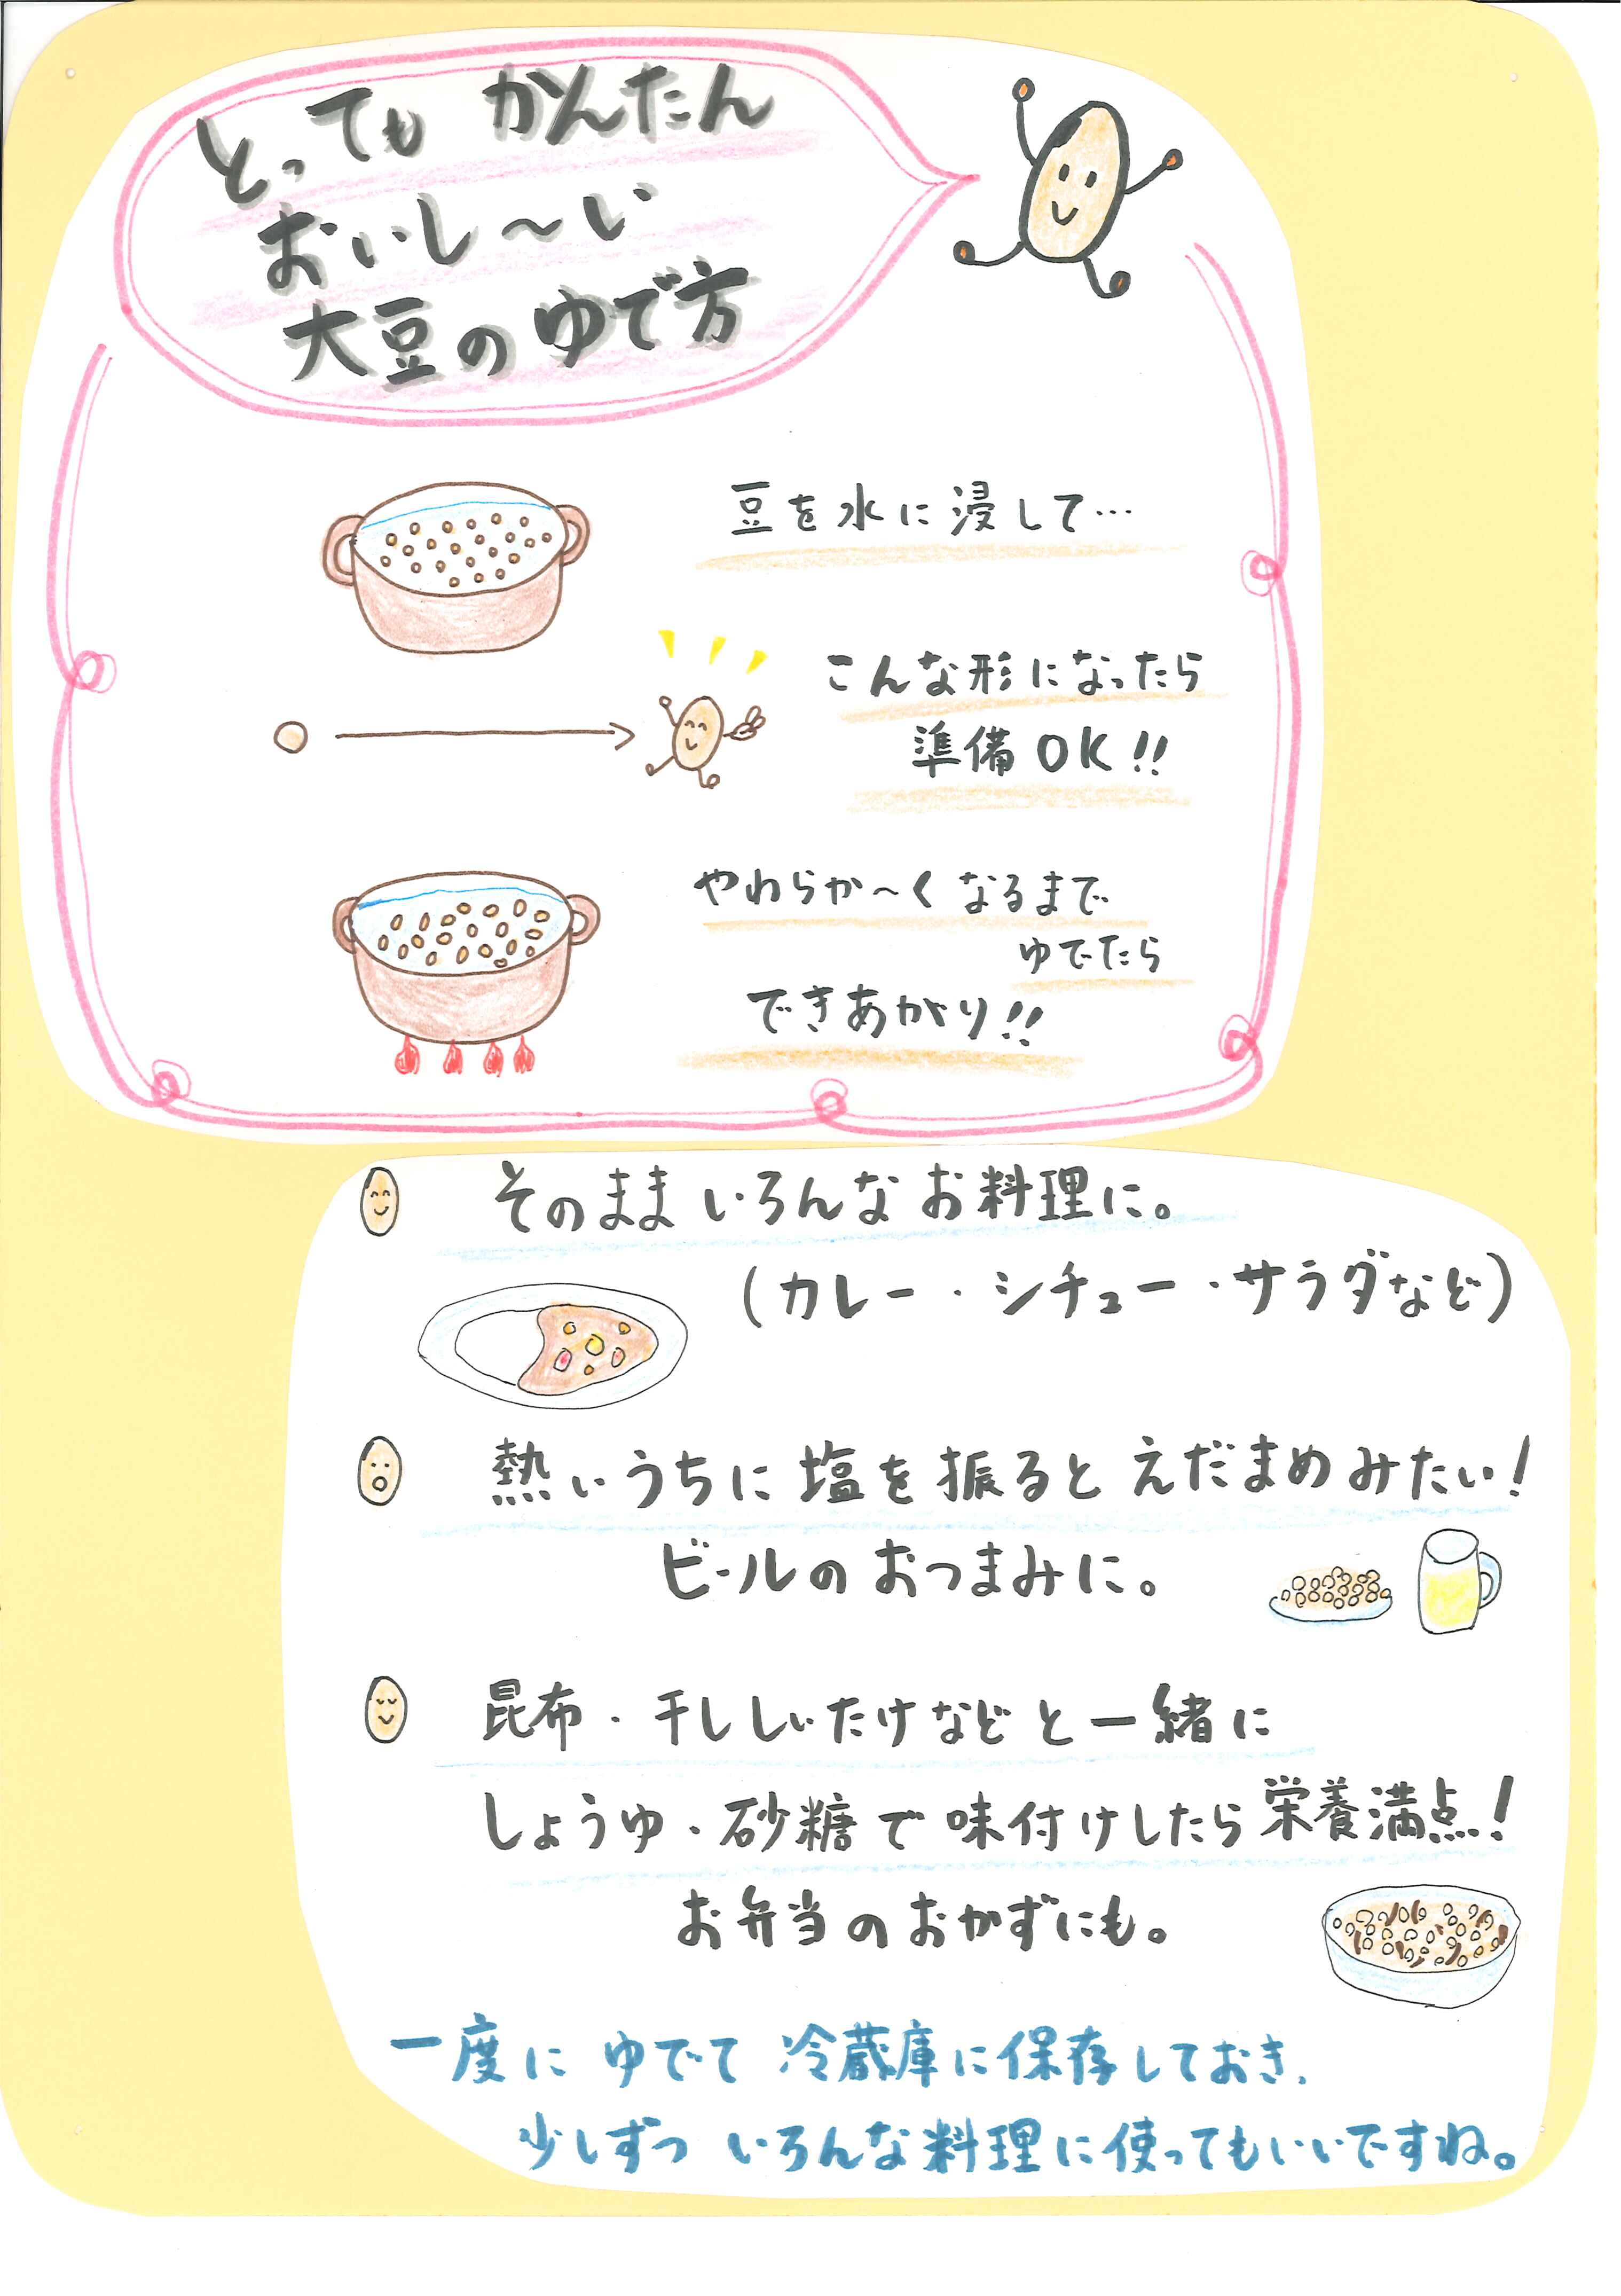 とっても かんたん
おいし～い
大豆のゆで方
豆を水に浸して…
こんな形になったら
準備OK!!
やわらか～くなるまで
ゆでたら
できあがり!!
そのまま いろんな お料理に。
(カレー・シチュー・サラダなど)
熱いうちに 塩を振ると えだまめみたい!
ビールの おつまみに。
昆布・干ししいたけなどと一緒に
しょうゆ・砂糖で味付けしたら栄養満点!
お弁当のおかずにも。
一度に ゆでて 冷蔵庫に保存しておき、
少しずつ いろんな料理に使ってもいいですね。